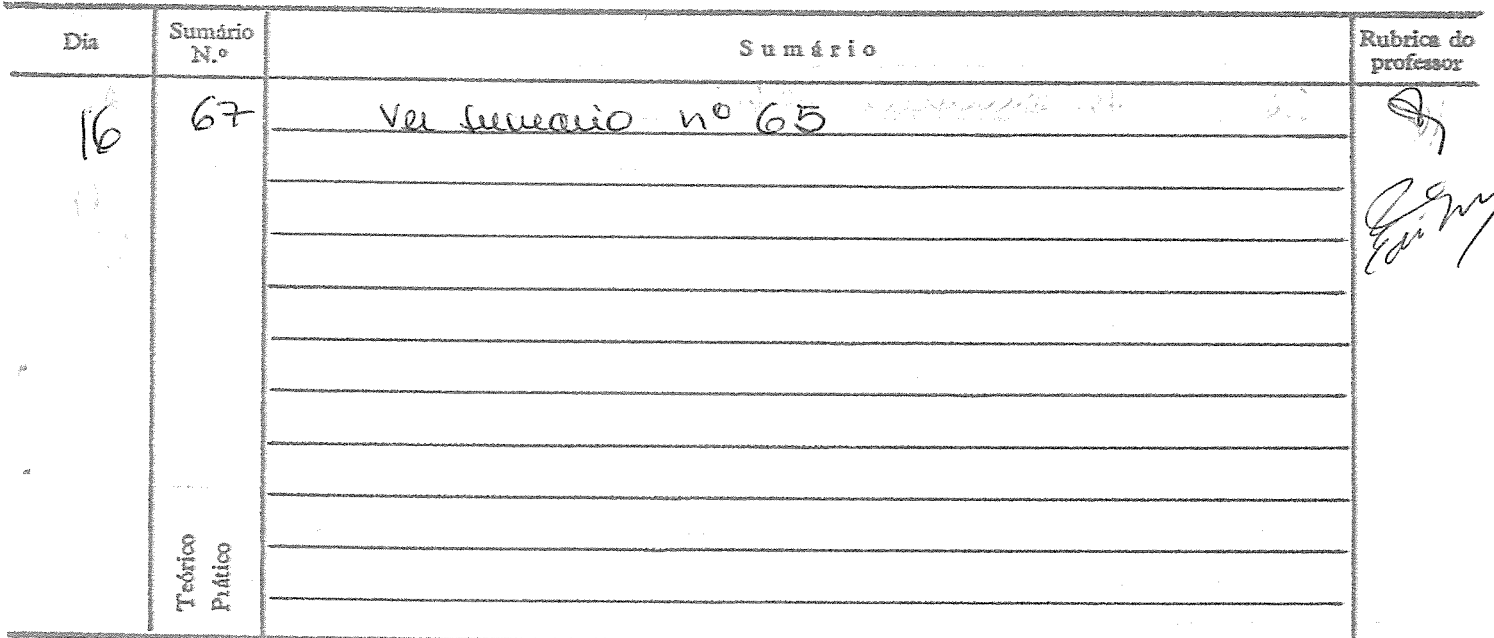 Dia
Sumário N.º
Sumário
Rubrica do professor
16
67
Ver sumario nº 65
Teórico
Prático